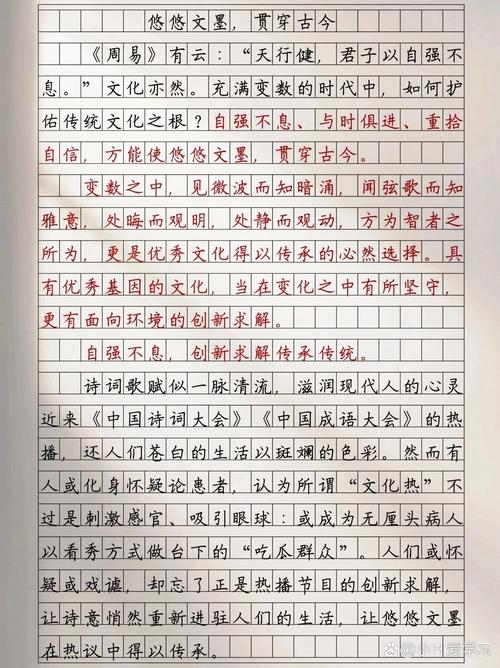 悠悠文墨，贯穿古今
《周易》有云：“天行健，君子以自强不
息。”文化亦然。充满变数的时代中，如何护
佑传统文化之根？自强不息、与时俱进、重拾
自信，方能使悠悠文墨，贯穿古今。
变数之中，见微波而知暗涌，闻弦歌而知
雅意，处晦而观明，处静而观动，方为智者之
所为，更是优秀文化得以传承的必然选择。具
有优秀基因的文化，当在变化之中有所坚守，
更有面向环境的创新求解。
自强不息，创新求解传承传统。
诗词歌赋似一脉清流，滋润现代人的心灵
近来《中国诗词大会》《中国成语大会》的热
播，还人们苍白的生活以斑斓的色彩。然而有
人或化身怀疑论患者，认为所谓“文化热”不
过是刺激感官、吸引眼球：或成为无厘头病人
以看秀方式做台下的“吃瓜群众”。人们或怀
疑或戏谑，却忘了正是热播节目的创新求解，
让诗意悄然重新进驻人们的生活，让悠悠文墨
在热议中得以传承。